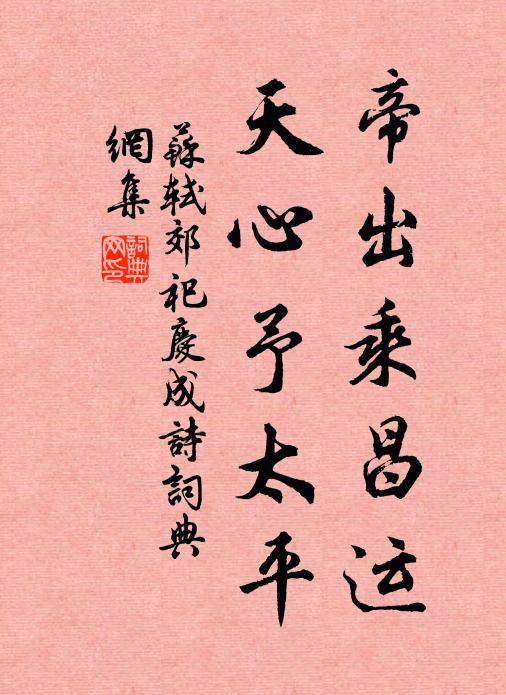 帝出乘昌运
天心予太平
蘇軾郊祀慶成詩詞典
網集
詞典
网印